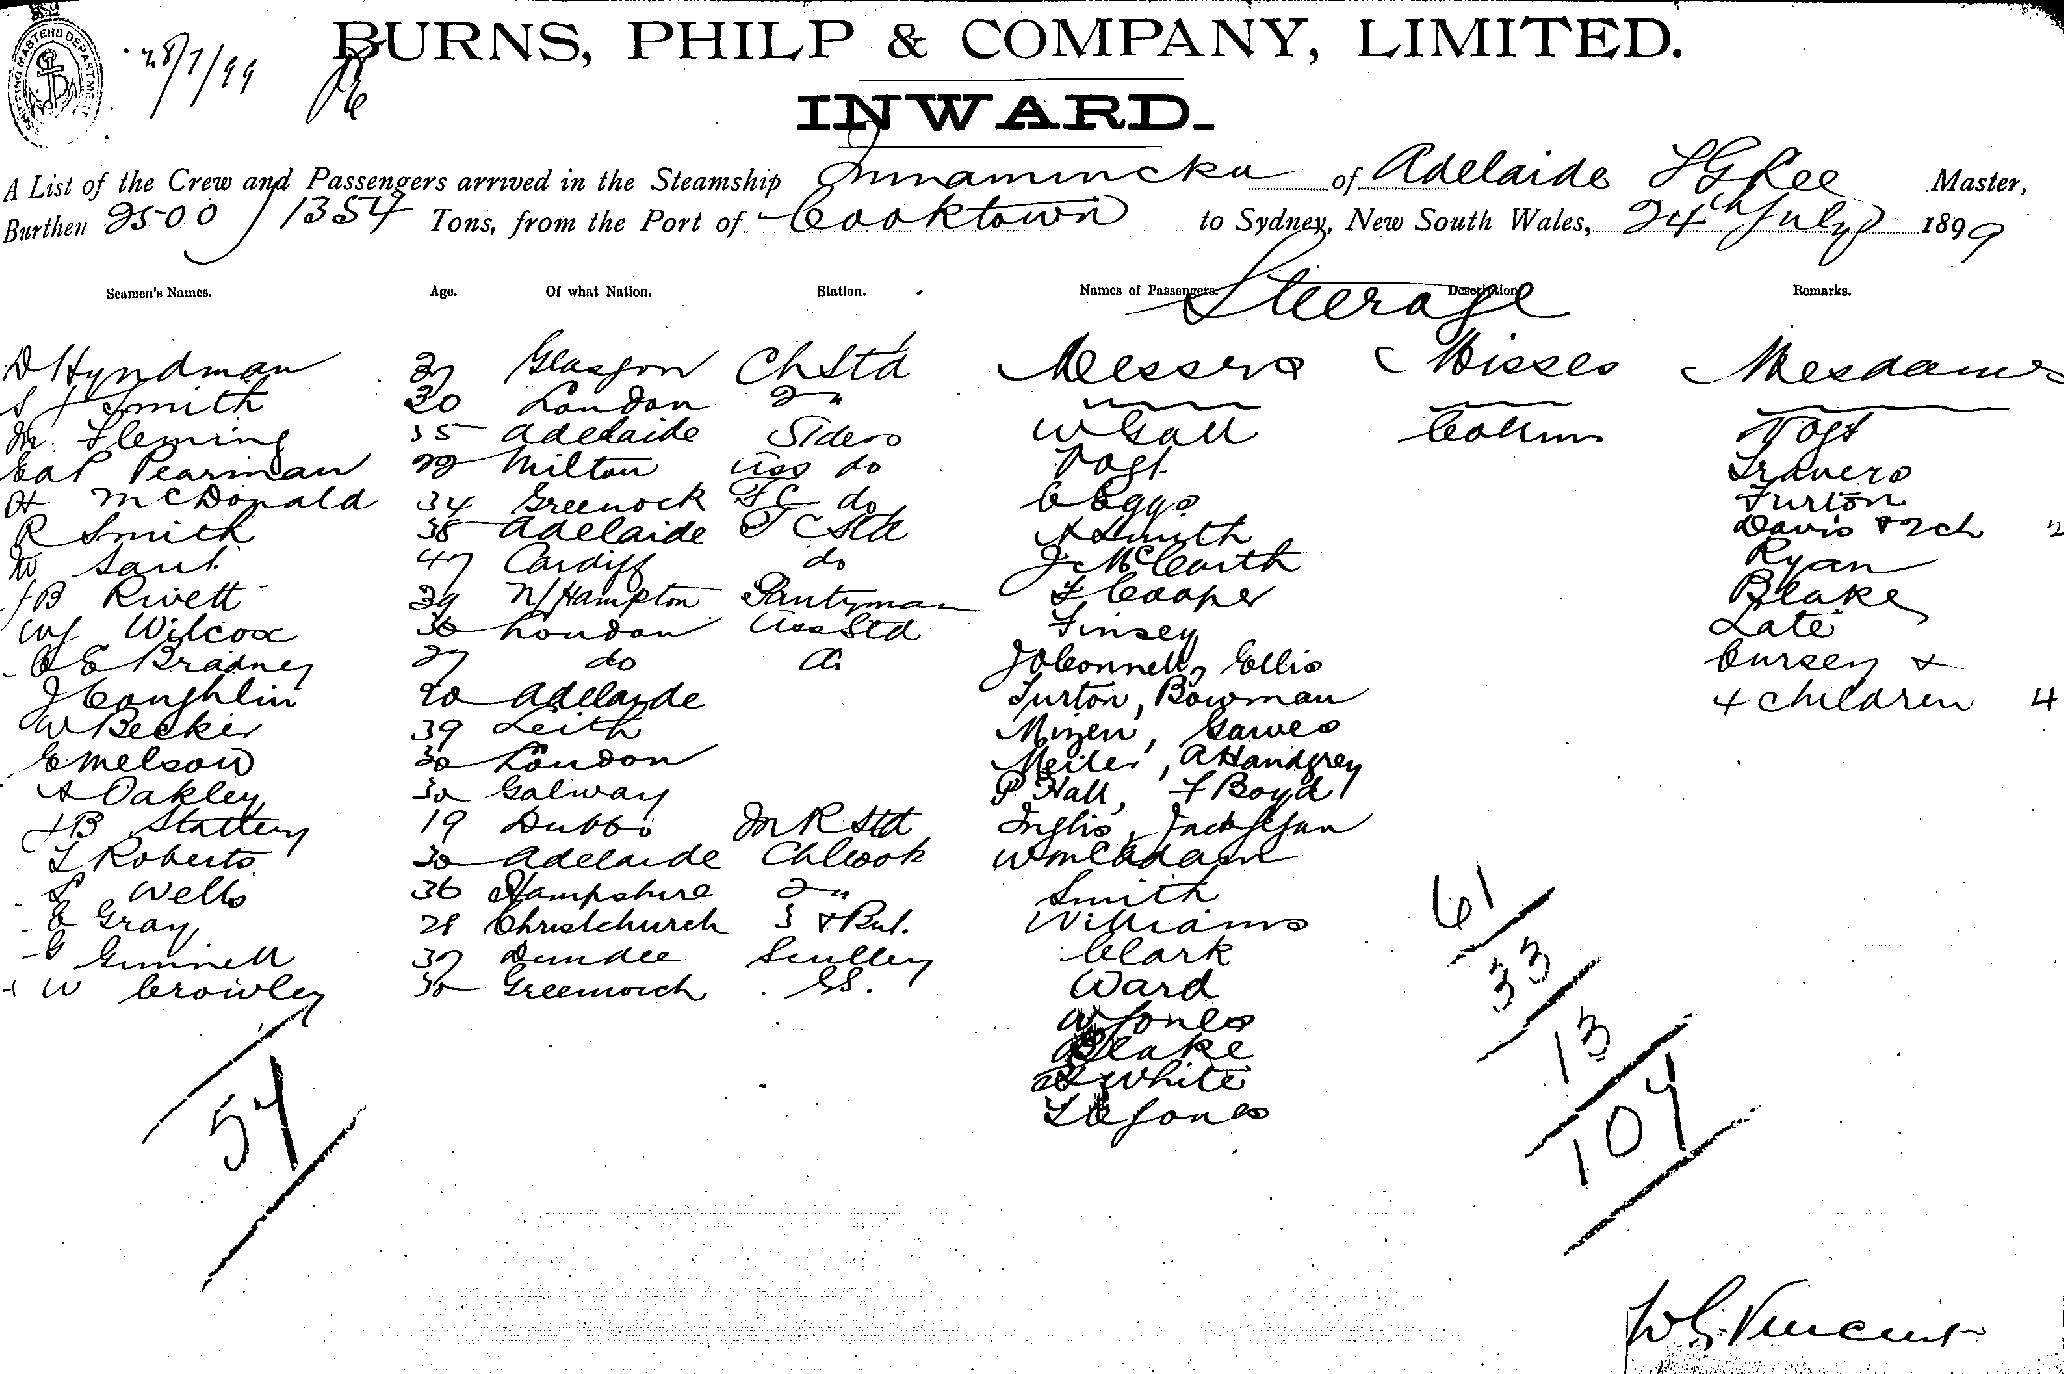 28/7/99
BURNS, PHILP & COMPANY, LIMITED.
INWARD.
A List of the Crew and Passengers arrived in the Steamship Innamincka of Adelaide Lee Master,
Burthen 2500 / 1354 Tons, from the Port of Cooktown to Sydney, New South Wales, 24th July 1899
Seamen's Names. Age. Of what Nation. Station. Names of Passengers. Description. Remarks.
Steerage
D Hyndman Glasgow Ch Std Messrs Misses Mesdames
Smith 30 London Do
Fleming 35 Adelaide Siders W Gall Vogt
Pearman Milton ass do Vogt Travers
H McDonald 34 Greenock do C Eggs Turton
R Smith 38 Adelaide Std A Smith Davis & 2 ch 2
47 Cardiff do J McCarth Ryan
Rivett 39 N/Hampton Pantryman F Cooper Blake
Wilcox 30 London Ass Std Finsey Late
E Bradney 27 do J O'Connell, Ellis Cursey &
J Coughlin 20 Adelaide Turton, Bowman 4 children 4
W Becker 39 Leith Mizen, Gawes
E Melson 30 London A Handgrey
A Oakley 30 Galway P Hall, F Boyd
Slattery 19 Dubbo Std Inglis,
Roberts 30 Adelaide Ch Cook W McAdam
Wells 36 Hampshire Smith
Gray 28 Christchurch Williams
G Gunnell 37 Dundee Scullery Clark
W Crowley 30 Greenwich G.S. Ward
W Jones
Blake
White
Jones
54
61
33
13
104
W G Vincent